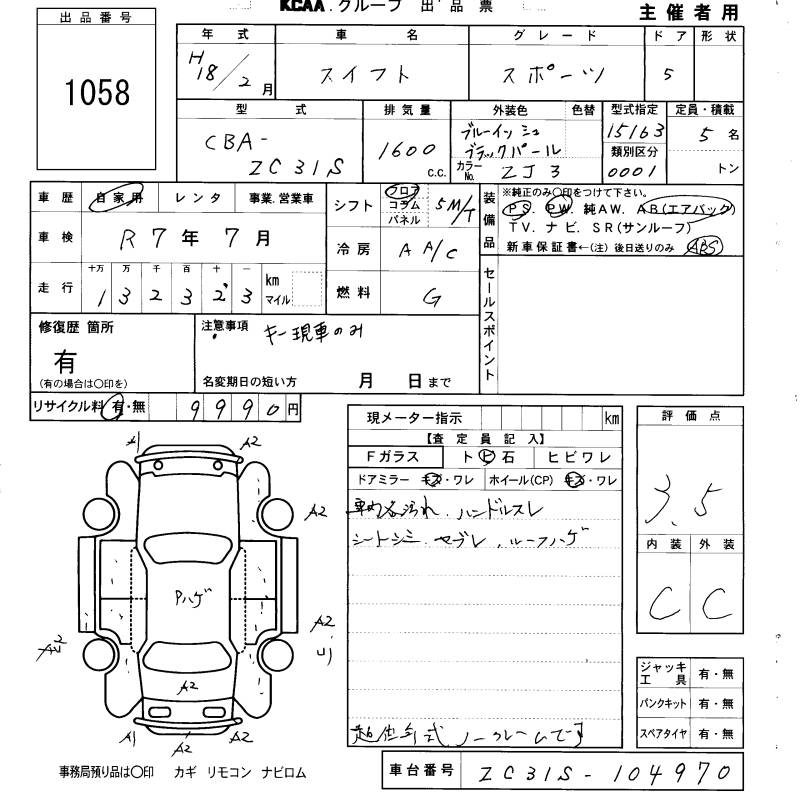 KCAA.グループ 出品票
主催者用
出品番号
1058
年式 車名 グレード ドア 形状
H18/2月 スイフト スポーツ 5
型式 排気量 外装色 色替 型式指定 定員・積載
CBA-
ZC31S
1600 c.c.
ブルーイッシュ
ブラックパール
カラーNo. ZJ3
15163
類別区分
0001
5名
トン
車歴 自家用 レンタ 事業.営業車
シフト フロア コラム パネル 5M/T
装備品
※純正のみ○印をつけて下さい。
PS. PW. 純AW. AB(エアバック)
TV. ナビ. SR(サンルーフ)
新車保証書←(注) 後日送りのみ ABS
車検 R7年7月
冷房 AA/C
走行 十万 万 千 百 十 一
132323 km マイル
燃料 G
セールスポイント
修復歴 箇所
有
(有の場合は○印を)
注意事項 キー現車のみ
名変期日の短い方 月 日まで
リサイクル料 有・無 9990円
現メーター指示 km
評価点
【査定員記入】
Fガラス ト ヒ 石 ヒビワレ
ドアミラー キズ・ワレ ホイール(CP) キズ・ワレ
車内汚れ.ハンドルスレ
シートシミ.セブレ.ルーフハゲ
3.5
内装 外装
C C
A1 A2
A2
Pハゲ
A2
A2
A1 A2 A2
ジャッキ工具 有・無
パンクキット 有・無
スペアタイヤ 有・無
ノークレームです
事務局預り品は○印 カギ リモコン ナビロム
車台番号 ZC31S-104970